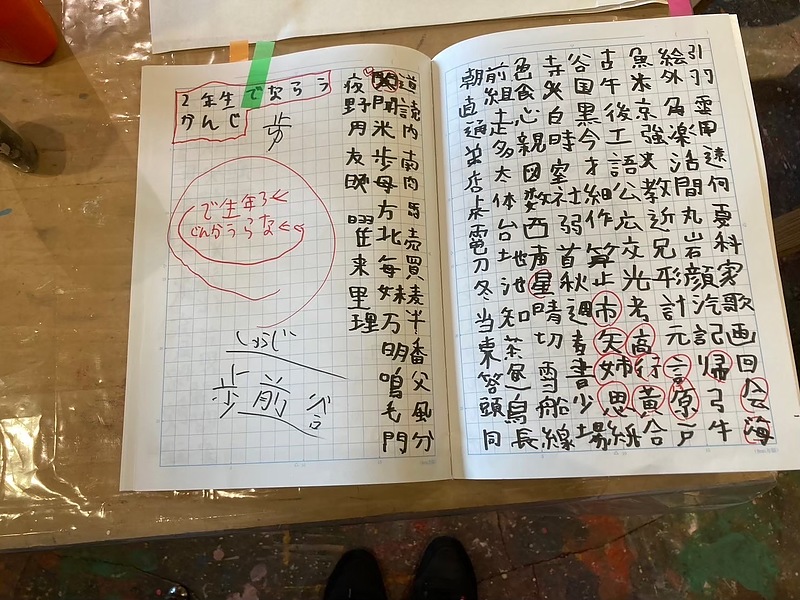 引羽雲遠何夏科家歌画回会海
絵外角楽活間丸岩顔汽記帰弓牛
魚米京強教近兄形計元言原戸
古午後工語公広交光考高行黄合
谷国黒今才細作算止市矢姉思紙
寺白時室社弱首秋週書少場
色食心親図数西声星晴切雪船線
前組走多太体台地池知茶昼鳥長
朝直通弟店点電刀冬当東答頭同
道読内南肉馬売買麦半番父風分
聞米歩母方北毎妹万明鳴毛門
夜野用友曜来里理
2年生でならう
かんじ
歩
で生年2
じんかうらな
歩前